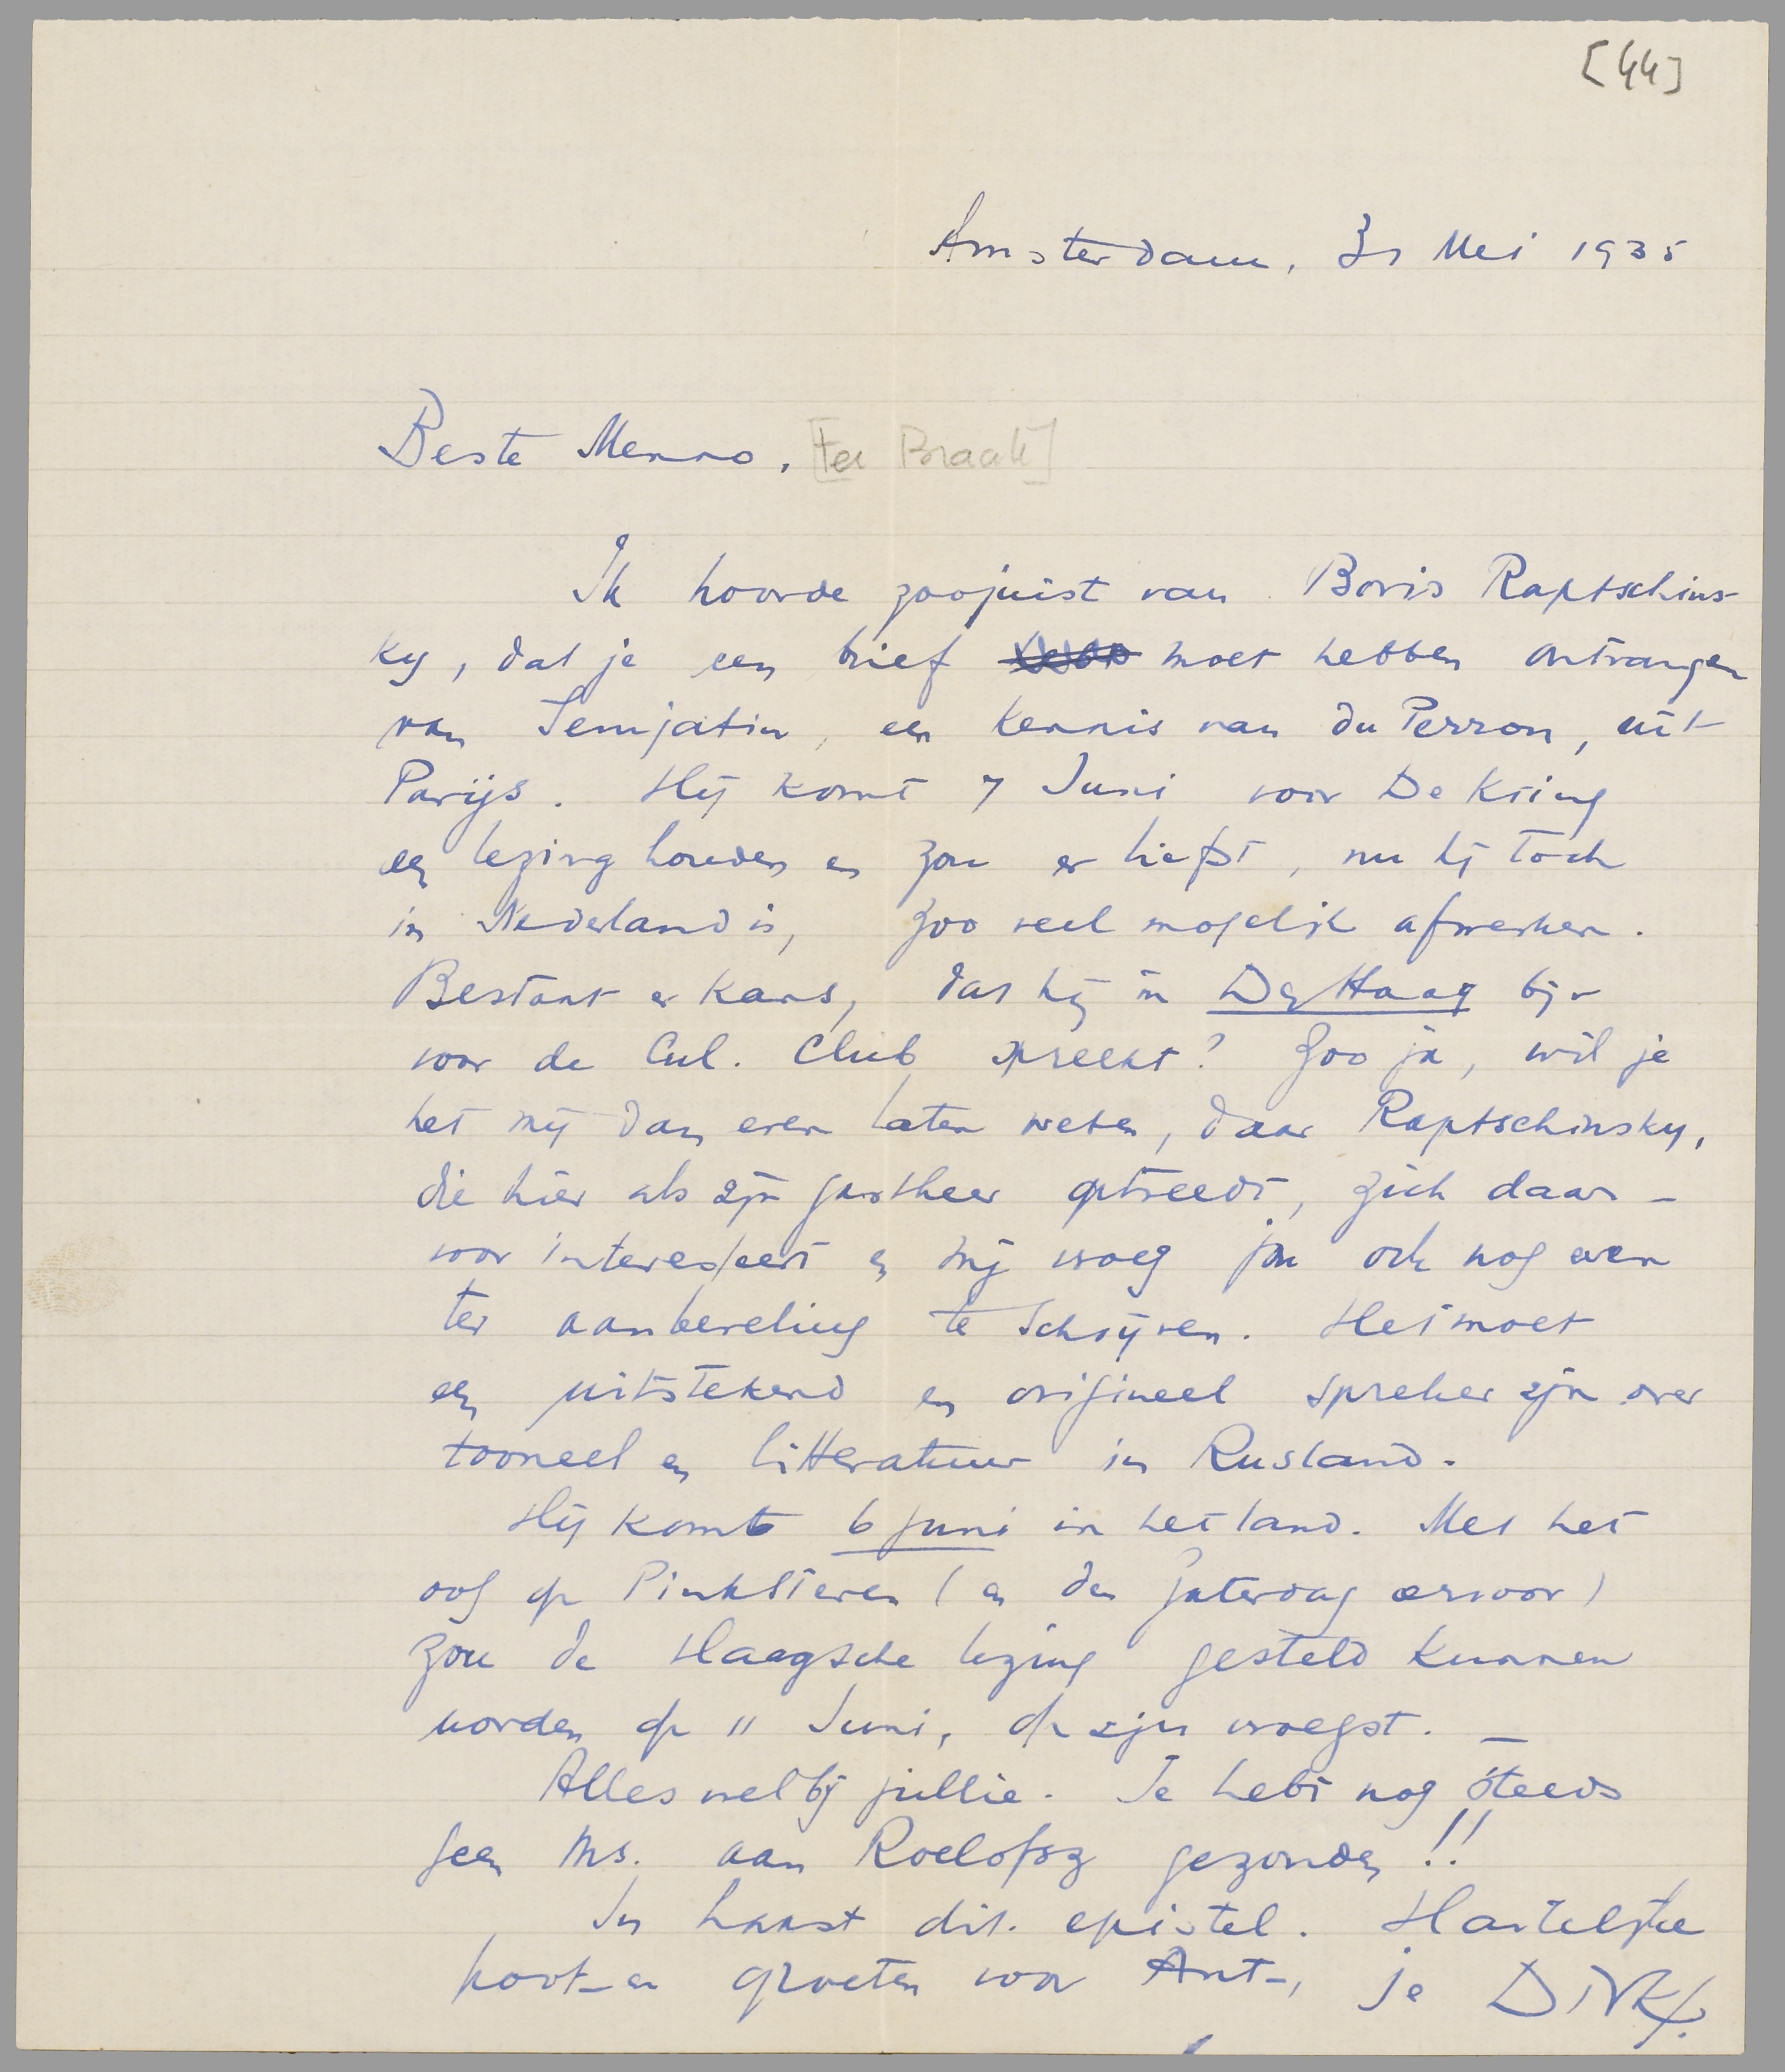 [44]
Amsterdam, 31 Mei 1935
Beste Menno, [ter Braak]
Ik hoorde zoojuist van Boris Raptschins-
ky, dat je een brief moet hebben ontvangen
van Semjatin, een kennis van du Perron, uit
Parijs. Hij komt 7 Juni voor De Kring
een lezing houden en zou er liefst, nu hij toch
in Nederland is, zoo veel mogelijk afwerken.
Bestaat er kans, dat hij in Den Haag bijv
voor de Cul. Club spreekt? Zoo ja, wil je
het mij dan even laten weten, daar Raptschinsky,
die hier als zijn gastheer optreedt, zich daar-
voor interesseert en mij vroeg jou ook nog even
ter aanbeveling te schrijven. Het moet
een uitstekend en origineel spreker zijn over
tooneel en litteratuur in Rusland.
Hij komt 6 juni in het land. Met het
oog op Pinksteren (en den Zaterdag ervoor)
zou de Haagsche lezing gesteld kunnen
worden op 11 Juni, op zijn vroegst. —
Alles wel bij jullie. Je hebt nog steeds
geen Ms. aan Roelofsz gezonden!!
In haast dit epistel. Hartelijke
poot en groeten voor Ant-, je DIRK.